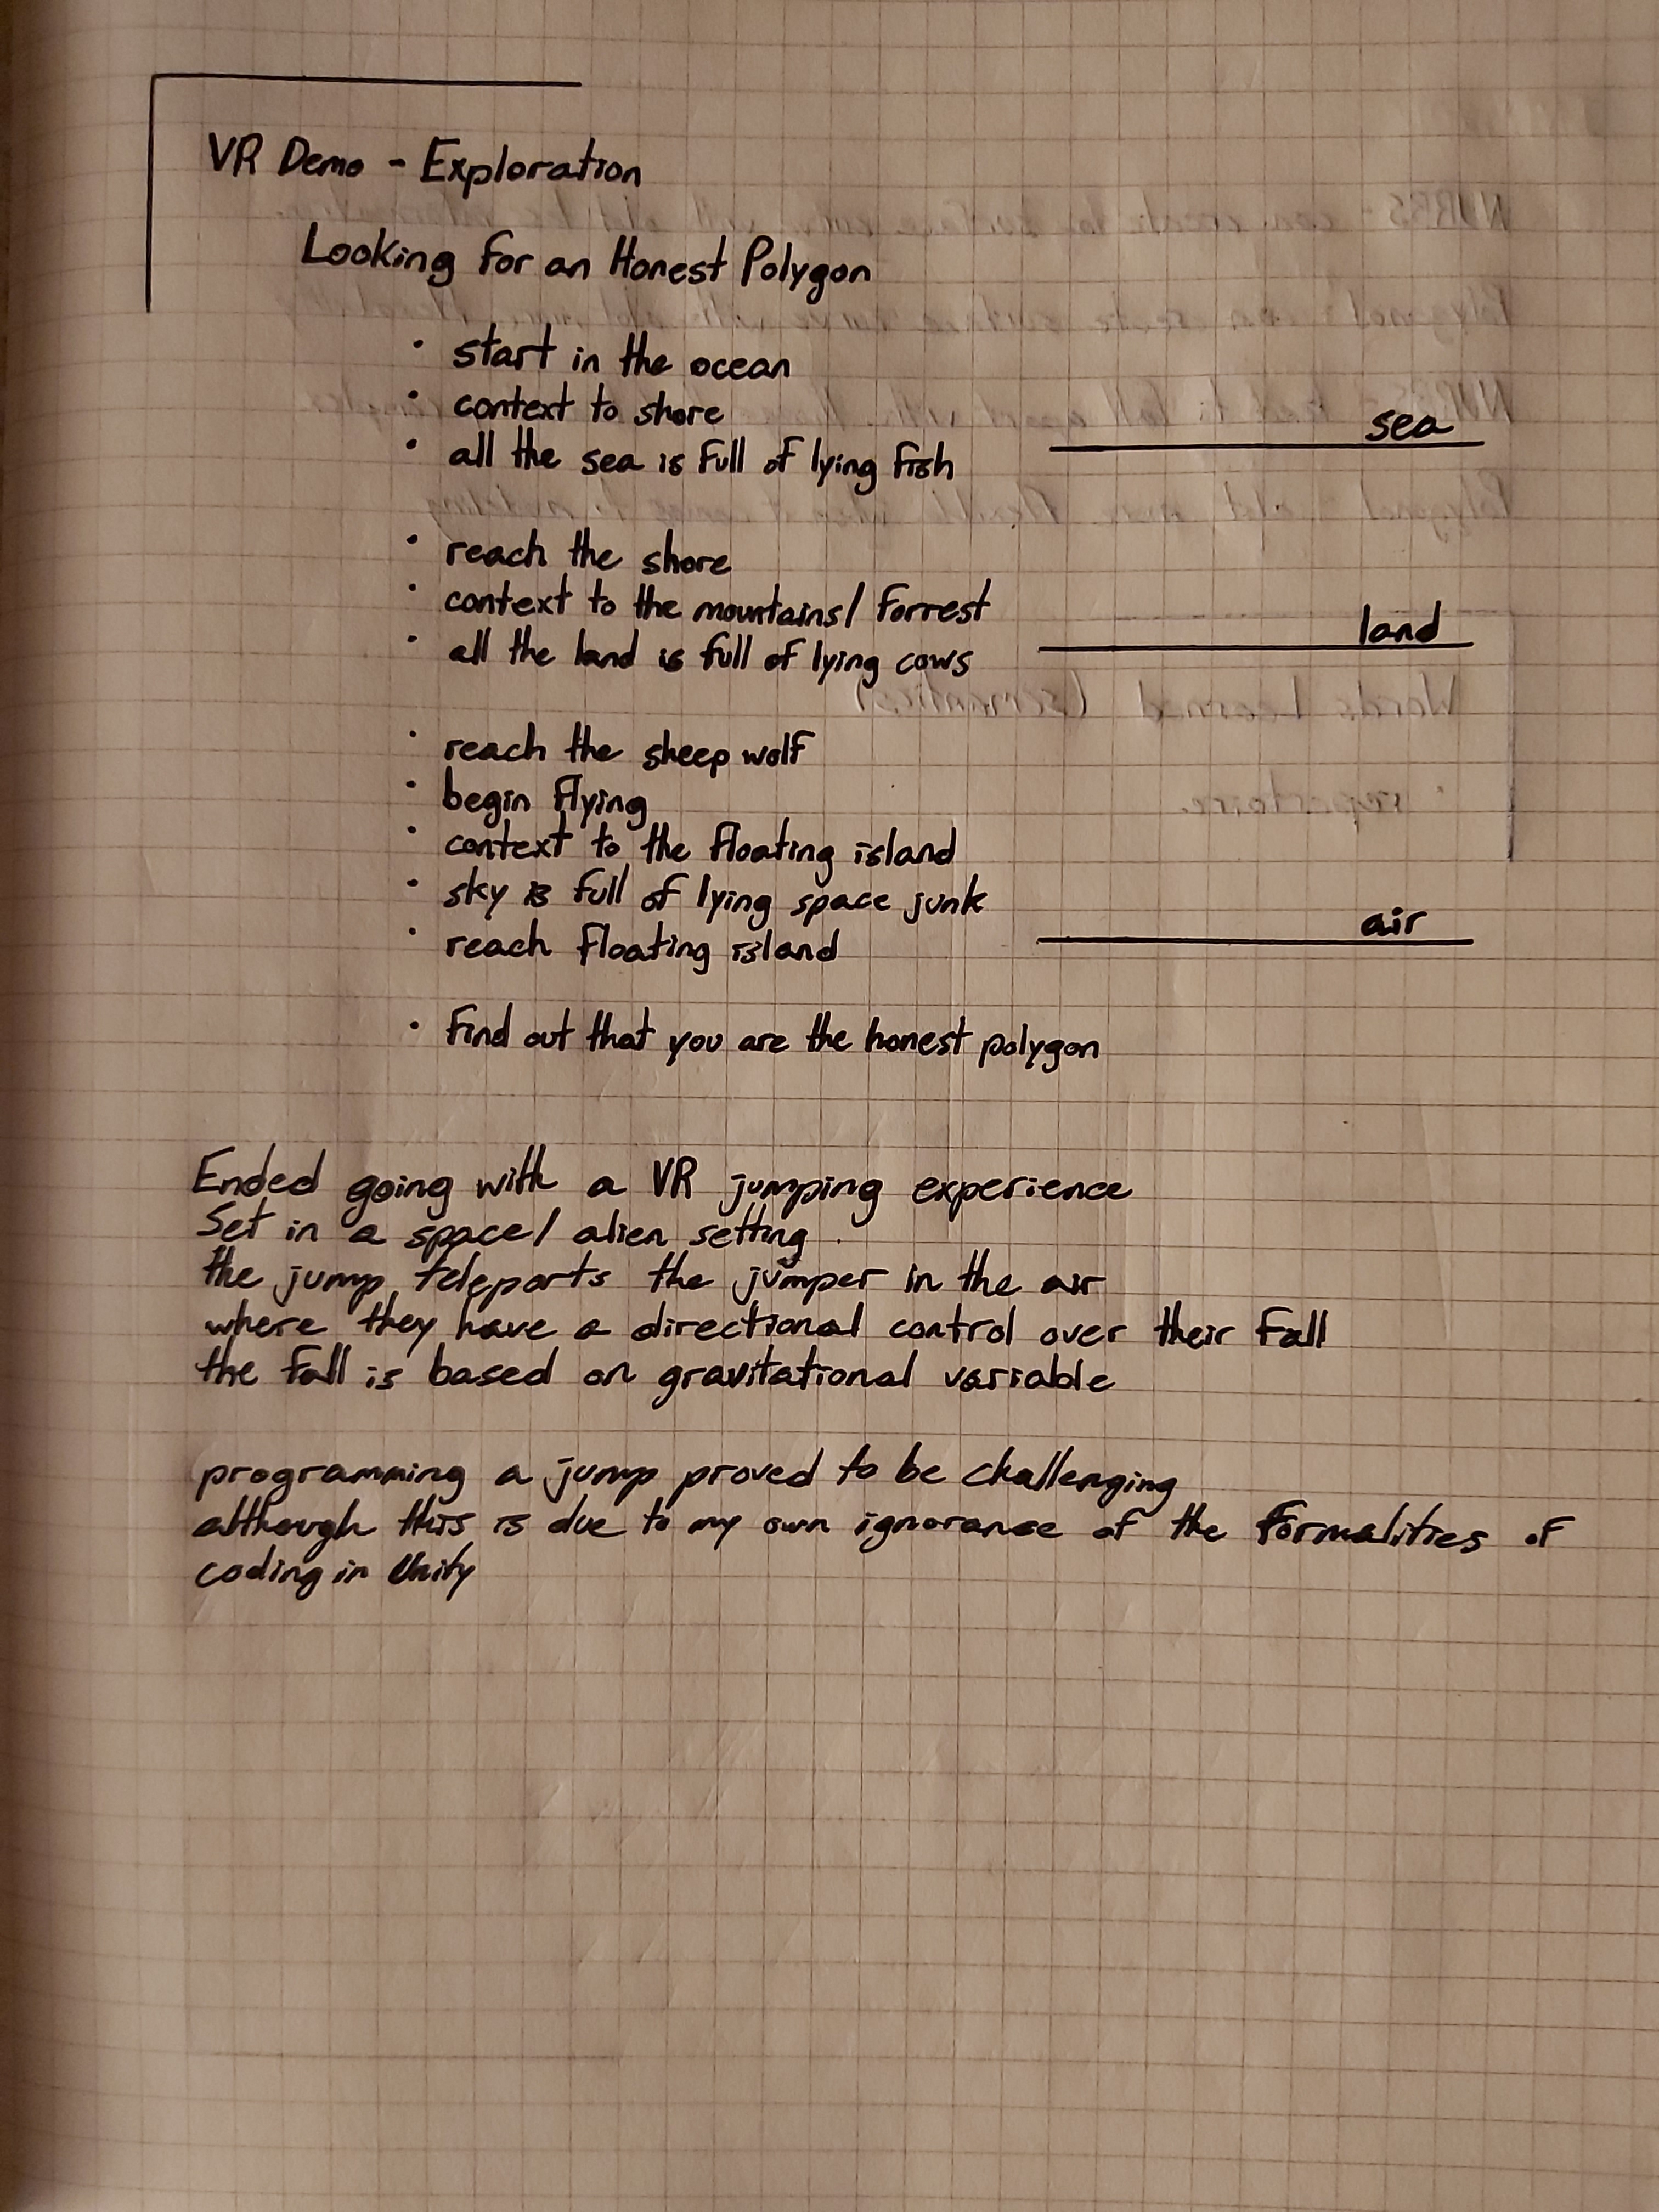 VR Demo - Exploration
Looking for an Honest Polygon
· start in the ocean
· context to shore
· all the sea is full of lying fish
sea
· reach the shore
· context to the mountains/ forrest
· all the land is full of lying cows
land
· reach the sheep wolf
· begin flying
· context to the floating island
· sky is full of lying space junk
· reach floating island
air
· find out that you are the honest polygon
Ended going with a VR jumping experience
Set in a space/ alien setting
the jump teleports the jumper in the air
where they have a directional control over their fall
the fall is based on gravitational variable
programming a jump proved to be challenging
although this is due to my own ignorance of the formalities of
coding in Unity